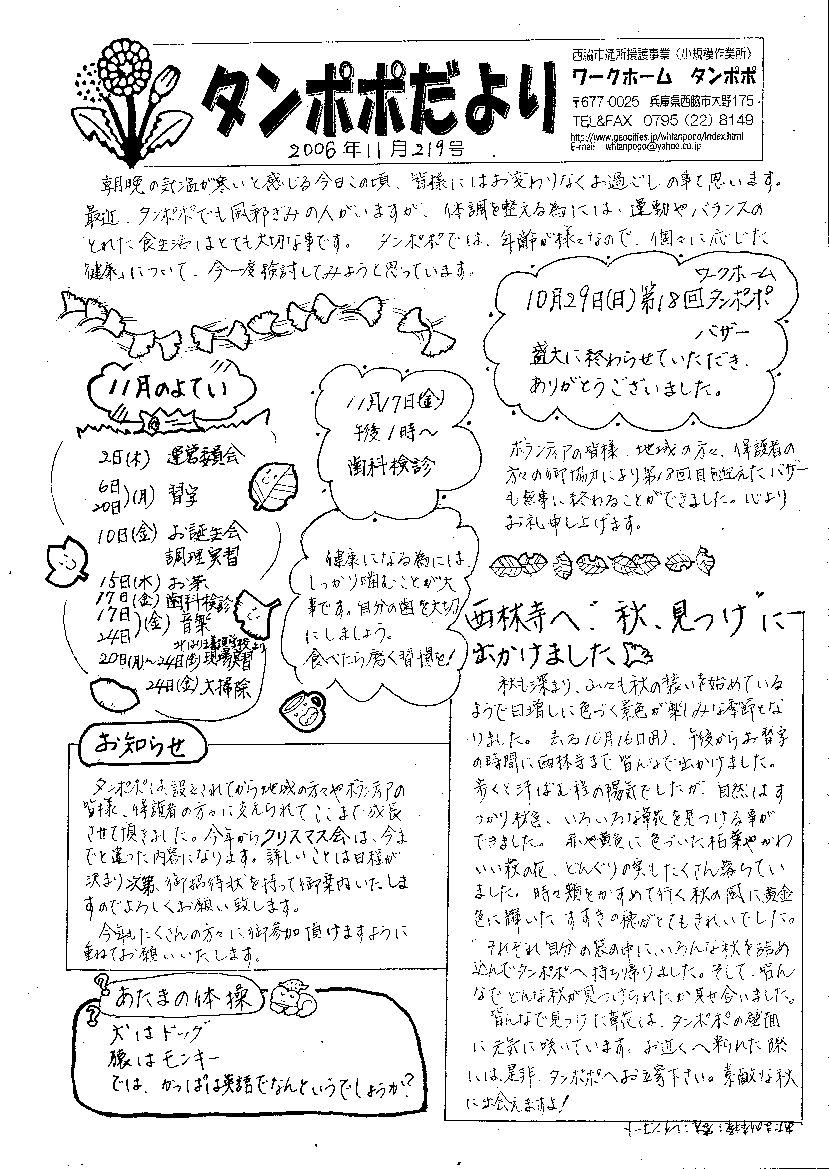 タンポポだより
2006年11月219号
西脇市通所援護事業(小規模作業所)
ワークホーム タンポポ
〒677-0025 兵庫県西脇市大野175
TEL&FAX 0795(22)8149
http://www.geocities.jp/whtanpopo/index.html
E-mail whtanpopo@yahoo.co.jp
朝晩の気温が寒いと感じる今日この頃、皆様にはお変わりなくお過ごしの事と思います。
最近、タンポポでも風邪ぎみの人がいますが、体調を整える為には、運動やバランスの
とれた食生活はとても大切な事です。 タンポポでは、年齢が様々なので、個々に応じた
「健康」について、今一度検討してみようと思っています。
ワークホーム
10月29日(日)第18回タンポポ
バザー
盛大に終わらせていただき、
ありがとうございました。
ボランティアの皆様、地域の方々、保護者の
方々の御協力により第18回目を迎えたバザー
も無事に終わることができました。心より
お礼申し上げます。
11月のよてい
2日(木) 運営委員会
6日
20日)(月) 習字
10日(金) お誕生会
調理実習
15日(水) お茶
17日(金) 歯科検診
17日
24日)(金) 音楽
養護学校より
20日(月)〜24日(金)現場実習
24日(金)大掃除
11月17日(金)
午後1時〜
歯科検診
健康になる為には、
しっかり噛むことが大
事です。自分の歯を大切
にしましょう。
食べたら磨く習慣を!
西林寺へ“秋、見つけ”に
出かけました
秋も深まり、山々も秋の装いを始めている
ようで日増しに色づく景色が楽しみな季節とな
りました。 去る10月16日(月)、午後からお習字
の時間に西林寺まで皆んなで出かけました。
歩くと汗ばむ程の陽気でしたが、自然はす
っかり秋色、いろいろな草花を見つける事が
できました。 赤や黄色に色づいた桜葉やかわ
いい萩の花、どんぐりの実もたくさん落ちてい
ました。時々頬をかすめて行く秋の風に黄金
色に輝いたすすきの穂がとてもきれいでした。
それぞれ自分の袋の中に、いろんな秋を詰め
込んでタンポポへ持ち帰りました。そして、皆ん
なでどんな秋が見つけられたか見せ合いました。
皆んなで見つけた草花は、タンポポの壁面
に元気に咲いています。お近くへ来られた際
には、是非、タンポポへお立寄下さい。素敵な秋
に出会えますよ!
お知らせ
タンポポは、設立されてから地域の方々やボランティアの
皆様、保護者の方々に支えられてここまで成長
させて頂きました。今年からクリスマス会は、今ま
でと違った内容になります。詳しいことは日程が
決まり次第、御招待状を持って御案内いたしま
すのでよろしくお願い致します。
今年もたくさんの方々に御参加頂けますように
重ねてお願いいたします。
あたまの体操
犬はドッグ
猿はモンキー
では、かっぱは英語でなんというでしょうか?
あたまの体操:答え:レインコート